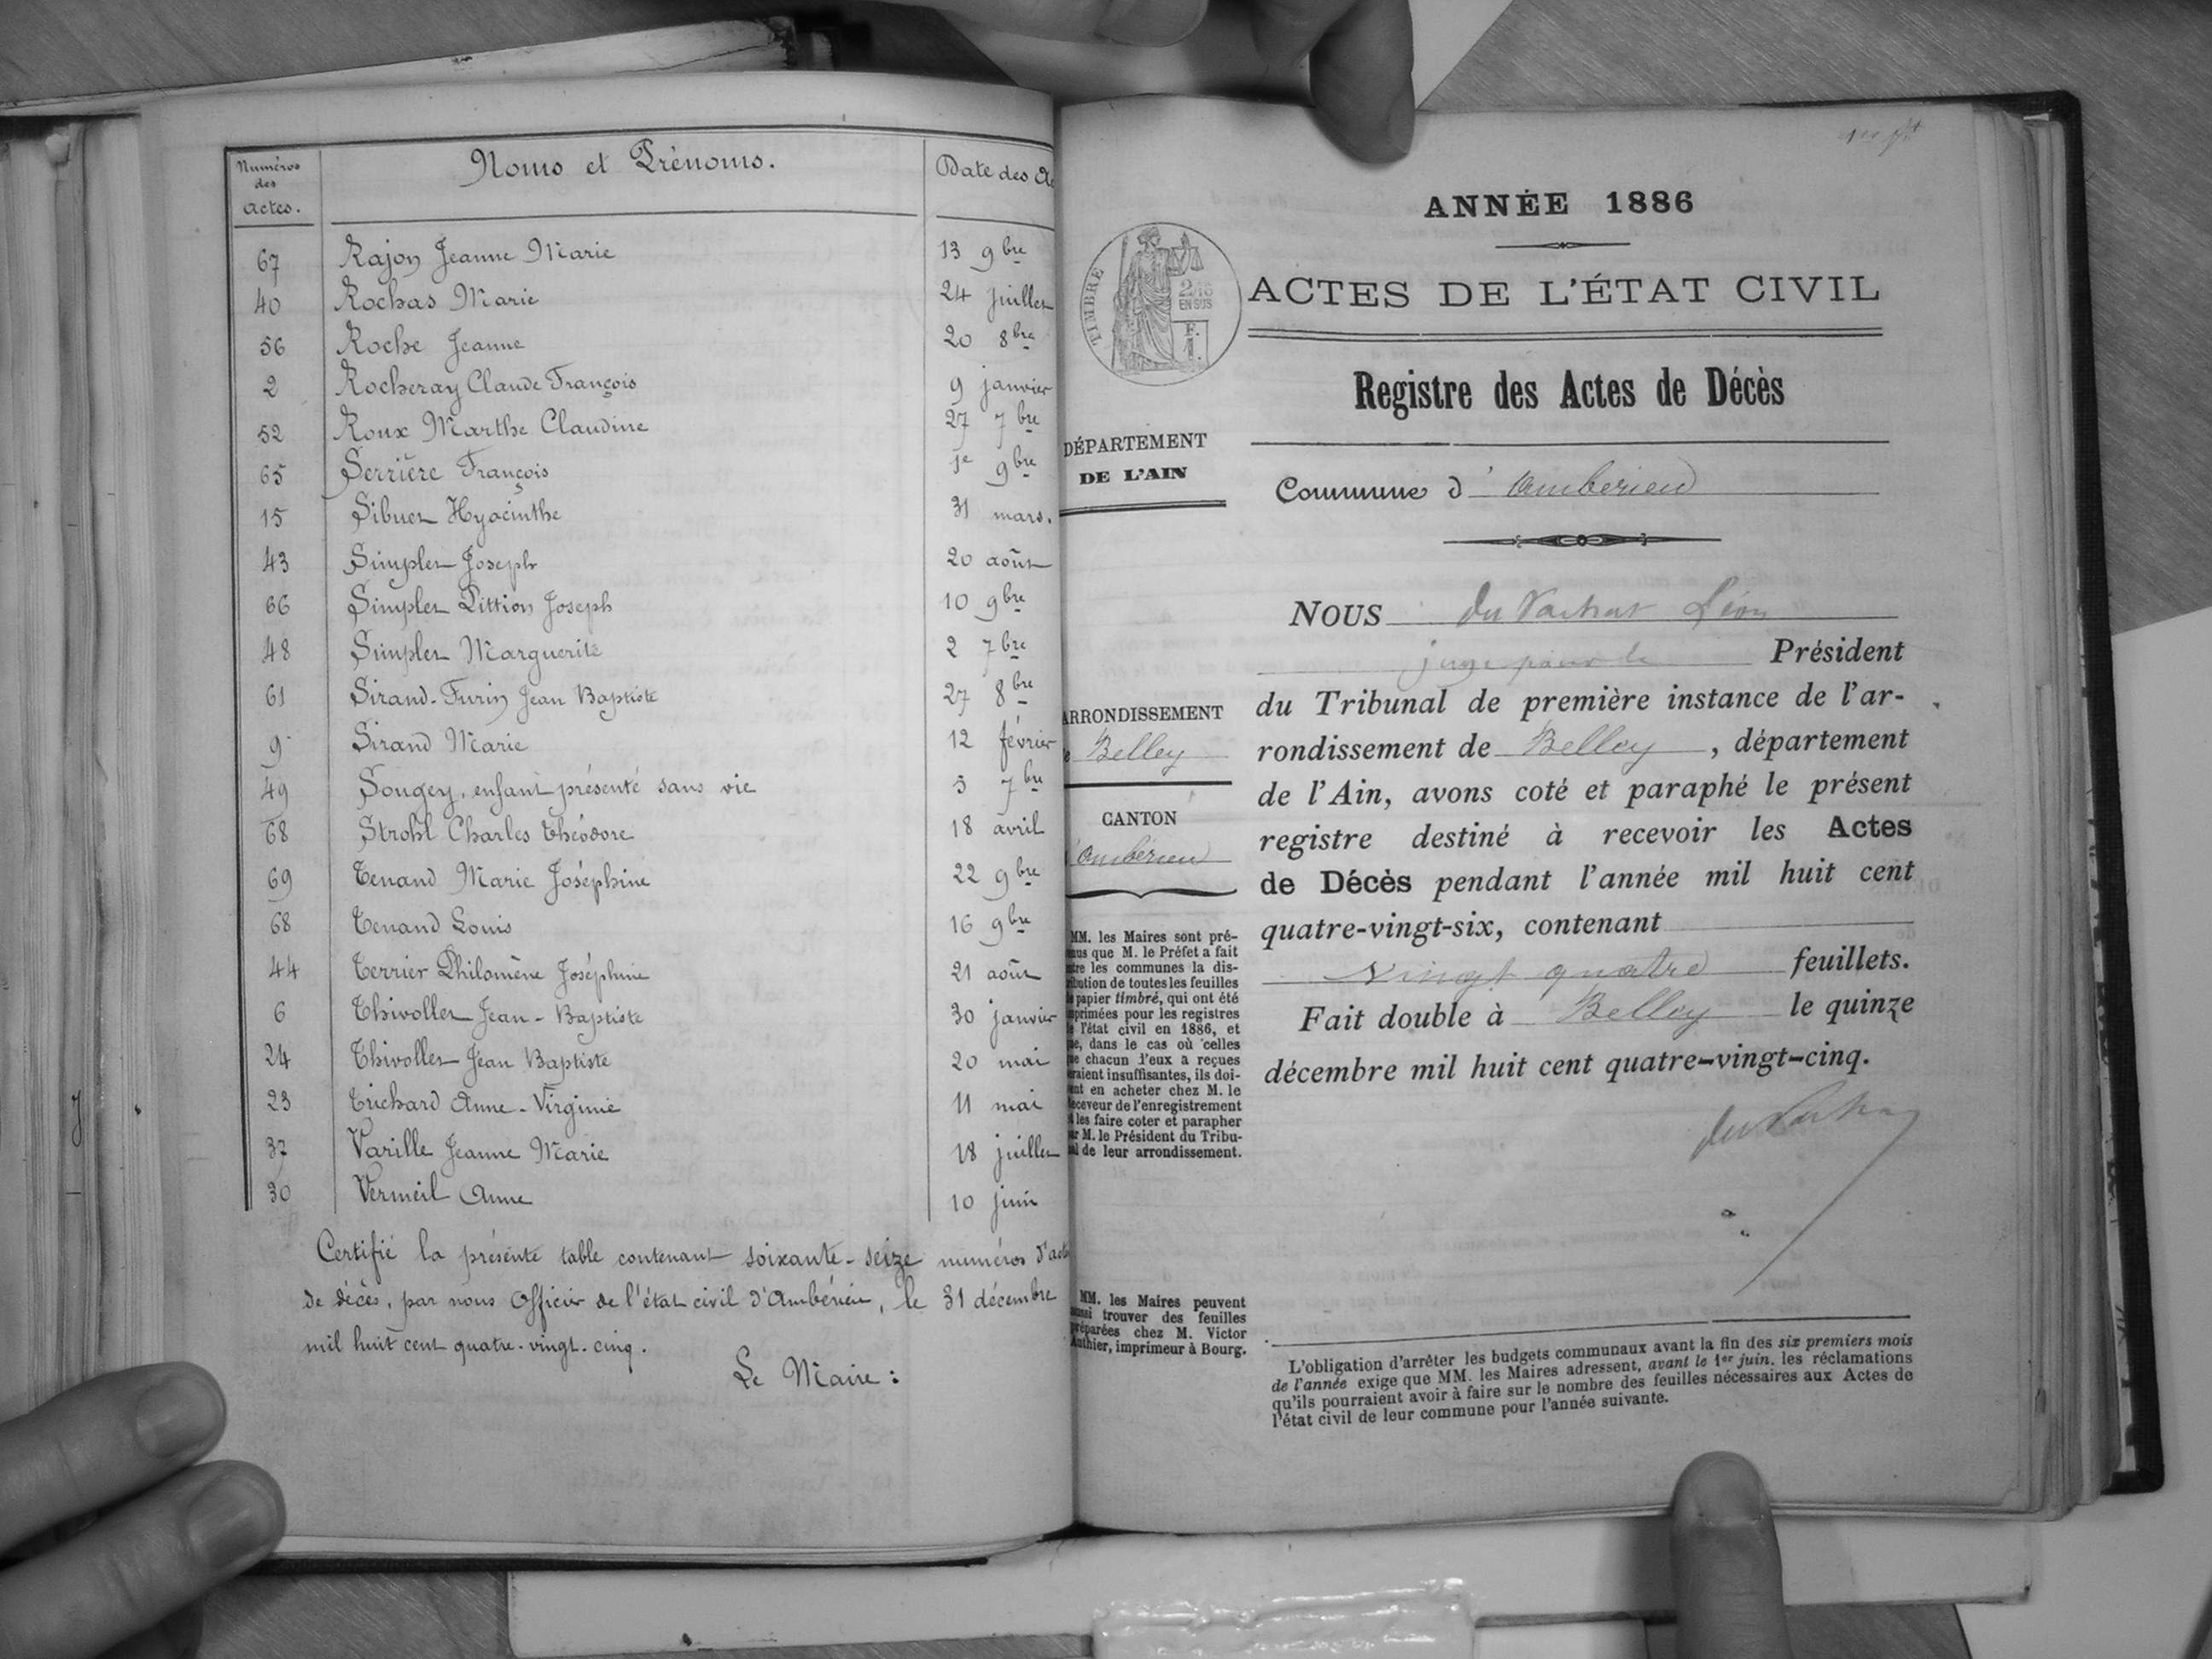 Numéros des actes. Noms et Prénoms. Date des
67 Rajon Jeanne Marie 13 9bre
40 Rochas Marie 24 juillet
56 Roche Jeanne 20 8bre
2 Rocheray Claude François 9 janvier
52 Roux Marthe Claudine 27 7bre
65 Serrière François 1e 9bre
15 Sibuet Hyacinthe 31 mars.
43 Simplet Joseph 20 août
66 Simplet Pittion Joseph 10 9bre
48 Simplet Marguerite 2 7bre
61 Sirand-Furin Jean Baptiste 27 8bre
9 Sirand Marie 12 février
49 Sougey, enfant présenté sans vie 5 7bre
68 Strohl Charles Théodore 18 avril
69 Tenand Marie Joséphine 22 9bre
68 Tenand Louis 16 9bre
44 Terrier Philomène Joséphine 21 août
6 Thivollet Jean-Baptiste 30 janvier
24 Thivollet Jean Baptiste 20 mai
23 Trichard Anne-Virginie 11 mai
37 Varille Jeanne Marie 18 juillet
30 Vermeil Anne 10 juin
Certifié la présente table contenant soixante-seize numéros d'acte
de décès, par nous Officier de l'état civil d'Ambérieu, le 31 décembre
mil huit cent quatre-vingt-cinq.
Le Maire :
ANNÉE 1886
TIMBRE
EN SUS
ACTES DE L'ÉTAT CIVIL
Registre des Actes de Décès
DÉPARTEMENT
DE L'AIN
Commune d'Ambérieu
ARRONDISSEMENT
Belley
CANTON
Ambérieu
MM. les Maires sont pré-
nus que M. le Préfet a fait
tre les communes la dis-
ribution de toutes les feuilles
papier timbré, qui ont été
primées pour les registres
l'état civil en 1886, et
e, dans le cas où celles
e chacun d'eux a reçues
raient insuffisantes, ils doi-
nt en acheter chez M. le
eceveur de l'enregistrement
les faire coter et parapher
r M. le Président du Tribu-
l de leur arrondissement.
MM. les Maires peuvent
ussi trouver des feuilles
préparées chez M. Victor
Authier, imprimeur à Bourg.
NOUS du Vachat Léon
juge pour le Président
du Tribunal de première instance de l'ar-
rondissement de Belley, département
de l'Ain, avons coté et paraphé le présent
registre destiné à recevoir les Actes
de Décès pendant l'année mil huit cent
quatre-vingt-six, contenant
vingt quatre feuillets.
Fait double à Belley le quinze
décembre mil huit cent quatre-vingt-cinq.
du Vachat
L'obligation d'arrêter les budgets communaux avant la fin des six premiers mois
de l'année exige que MM. les Maires adressent, avant le 1er juin, les réclamations
qu'ils pourraient avoir à faire sur le nombre des feuilles nécessaires aux Actes de
l'état civil de leur commune pour l'année suivante.